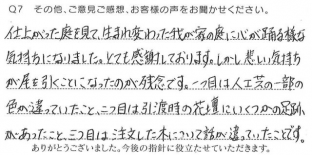 Q7 その他、ご意見ご感想、お客様の声をお聞かせください。
仕上がった庭を見て、生まれ変わった我が家の庭に心が踊る様な
気持ちになりました。とても感謝しております。しかし悲しい気持ち
が尾を引くことになったのが残念です。一つ目は人工芝の一部の
色が違っていたこと、二つ目は引渡時の花壇にいくつかの足跡
があったこと、三つ目は注文した木について話が違っていたことです。
ありがとうございました。今後の指針に役立たせていただきます。